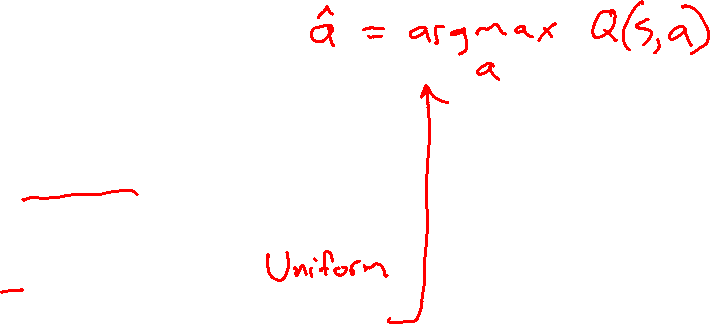 â = argmax Q(s,a)
a
Uniform